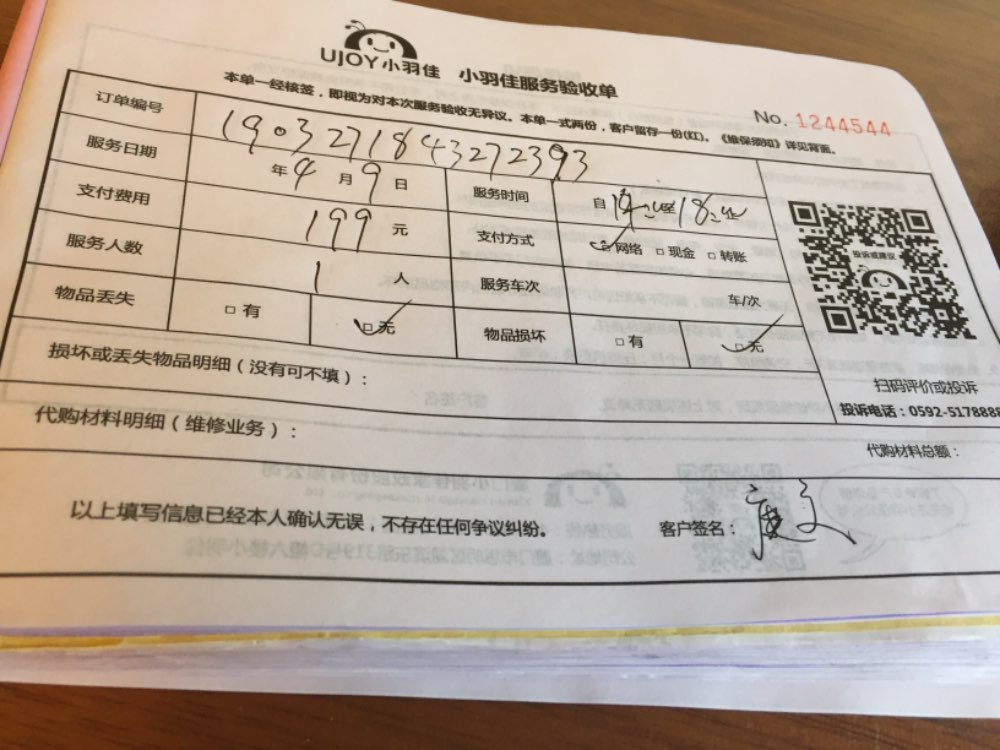 UJOY小羽佳 小羽佳服务验收单
本单一经核签，即视为对本次服务验收无异议。本单一式两份，客户留存一份(红)。《维保须知》详见背面。
No. 1244544
订单编号 1903271843272393
服务日期 年4月9日 服务时间 自 至18:
支付费用 199元 支付方式 ☑网络 □现金 □转账
服务人数 1人 服务车次 车/次
物品丢失 □有 ☑无 物品损坏 □有 ☑无
投诉或建议
扫码评价或投诉
投诉电话：0592-5178888
损坏或丢失物品明细（没有可不填）：
代购材料明细（维修业务）： 代购材料总额：
以上填写信息已经本人确认无误，不存在任何争议纠纷。 客户签名：